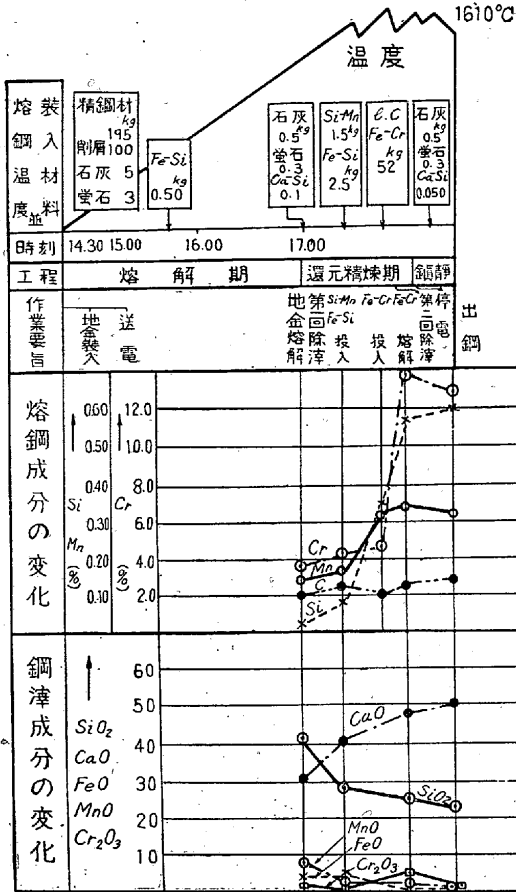 1610°C
温度
熔鋼温度並
装入材料
精鋼材
kg
195
削屑100
石灰 5
螢石 3
Fe-Si
kg
0.50
石灰
kg
0.5
螢石
0.3
Ca-Si
0.1
Si-Mn
1.5kg
Fe-Si
kg
2.5
Fe-Cr
kg
52
石灰
kg
0.5
螢石
0.3
CaSi
0.050
時刻
14.30 15.00
16.00
17.00
工程
熔解期
還元精煉期
鎮静
作業要旨
地金装入
送電
地金熔解
第一回除滓
Si-Mn
Fe-Si
投入
Fe-Cr
投入
FeCr
熔解
第二回除滓
停電
出鋼
熔鋼成分の変化
Si
Mn
(%)
0.60
0.50
0.40
0.30
0.20
0.10
Cr
(%)
12.0
10.0
8.0
6.0
4.0
2.0
Cr
Mn
C
Si
鋼滓成分の変化
SiO2
CaO
FeO
MnO
Cr2O3
60
50
40
30
20
10
CaO
SiO2
MnO
FeO
Cr2O3